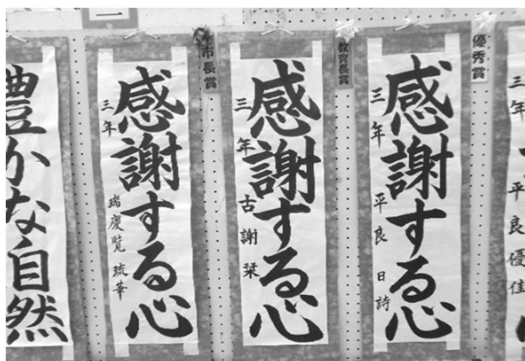 三年 平良優佳
優秀賞
感謝する心
三年 平良 日詩
教育長賞
感謝する心
三年 古謝 栞
市長賞
感謝する心
三年 瑞慶覧 琉華
豊かな自然